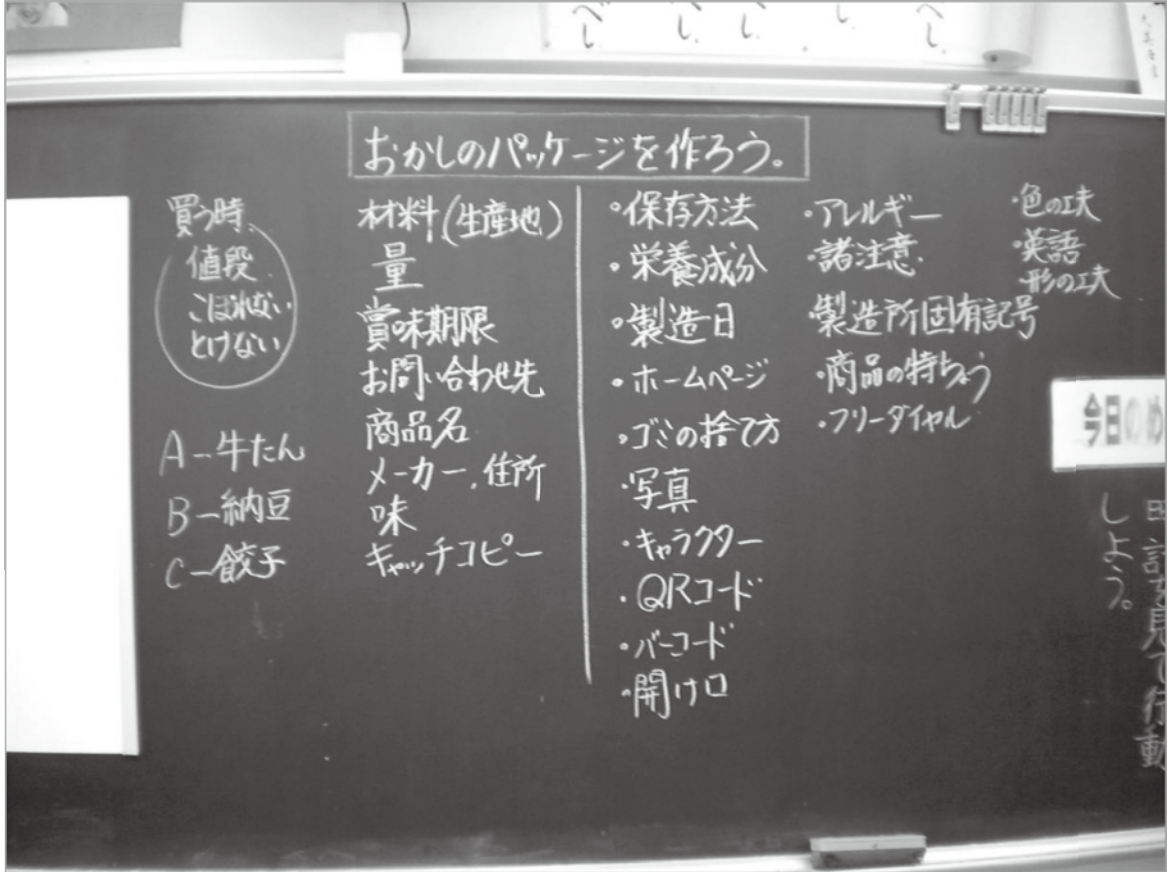 べし
し
し
し
べし
おかしのパッケージを作ろう。
買う時
値段
こぼれない
とけない
A-牛たん
B-納豆
C-餃子
材料(生産地)
量
賞味期限
お問い合わせ先
商品名
メーカー、住所
味
キャッチコピー
・保存方法
・栄養成分
・製造日
・ホームページ
・ゴミの捨て方
・写真
・キャラクター
・QRコード
・バーコード
・開け口
・アレルギー
・諸注意
・製造所固有記号
・商品の特ちょう
・フリーダイヤル
・色の工夫
・英語
・形の工夫
今日のめ
を見て行動
しよう。